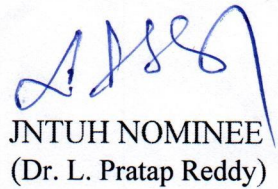 JNTUH NOMINEE
(Dr. L. Pratap Reddy)